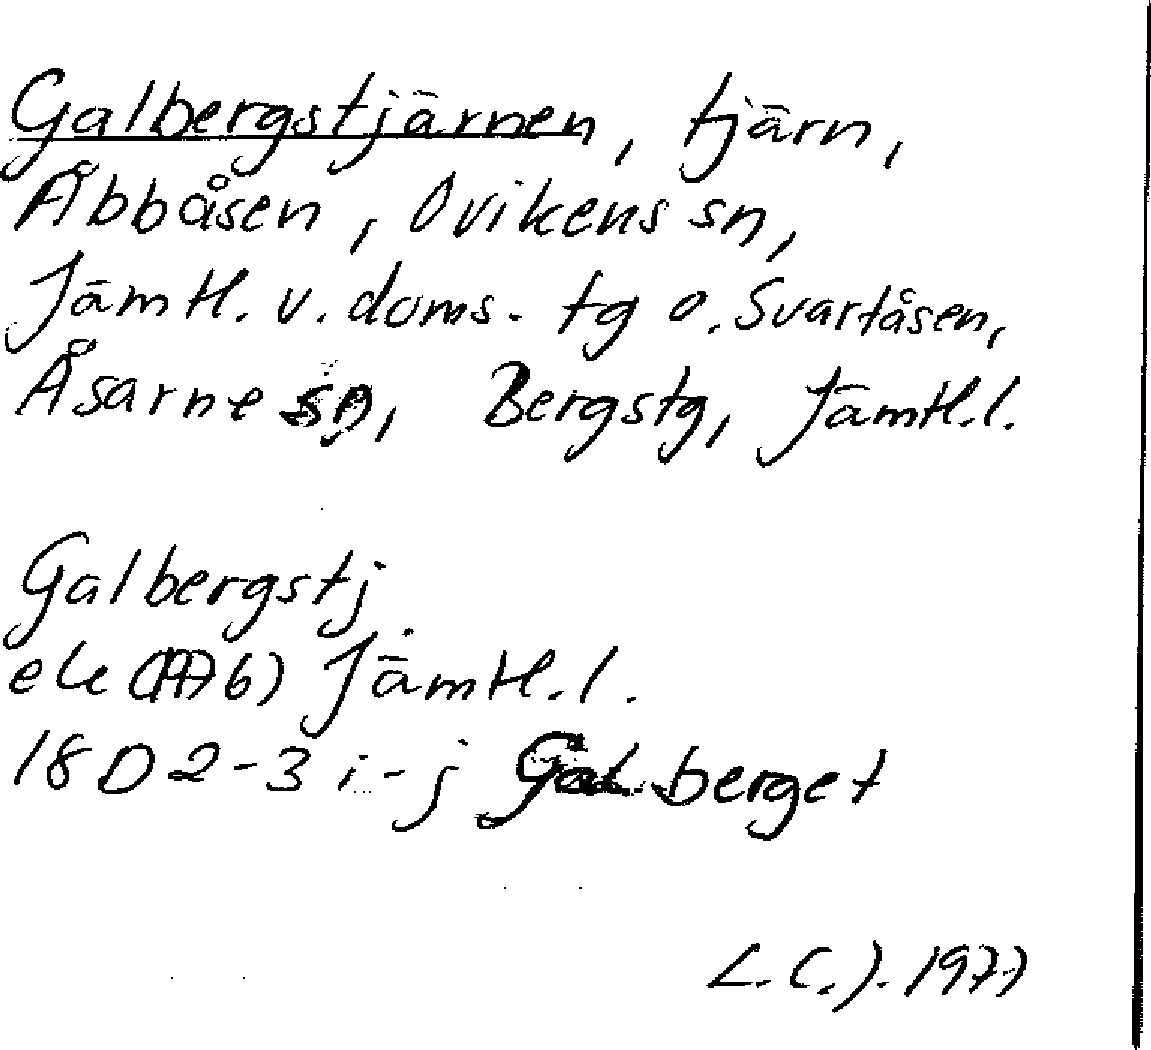 Galbergstjärnen, tjärn,
Åbbåsen, Ovikens sn,
Jämtl. v. doms. tg o. Svartåsen,
Åsarne sn, Bergstg, Jämtl.l.
Galbergstj.
ek (1976) Jämtl.l.
18D 2-3 i-j Galberget
L.C.J. 1977